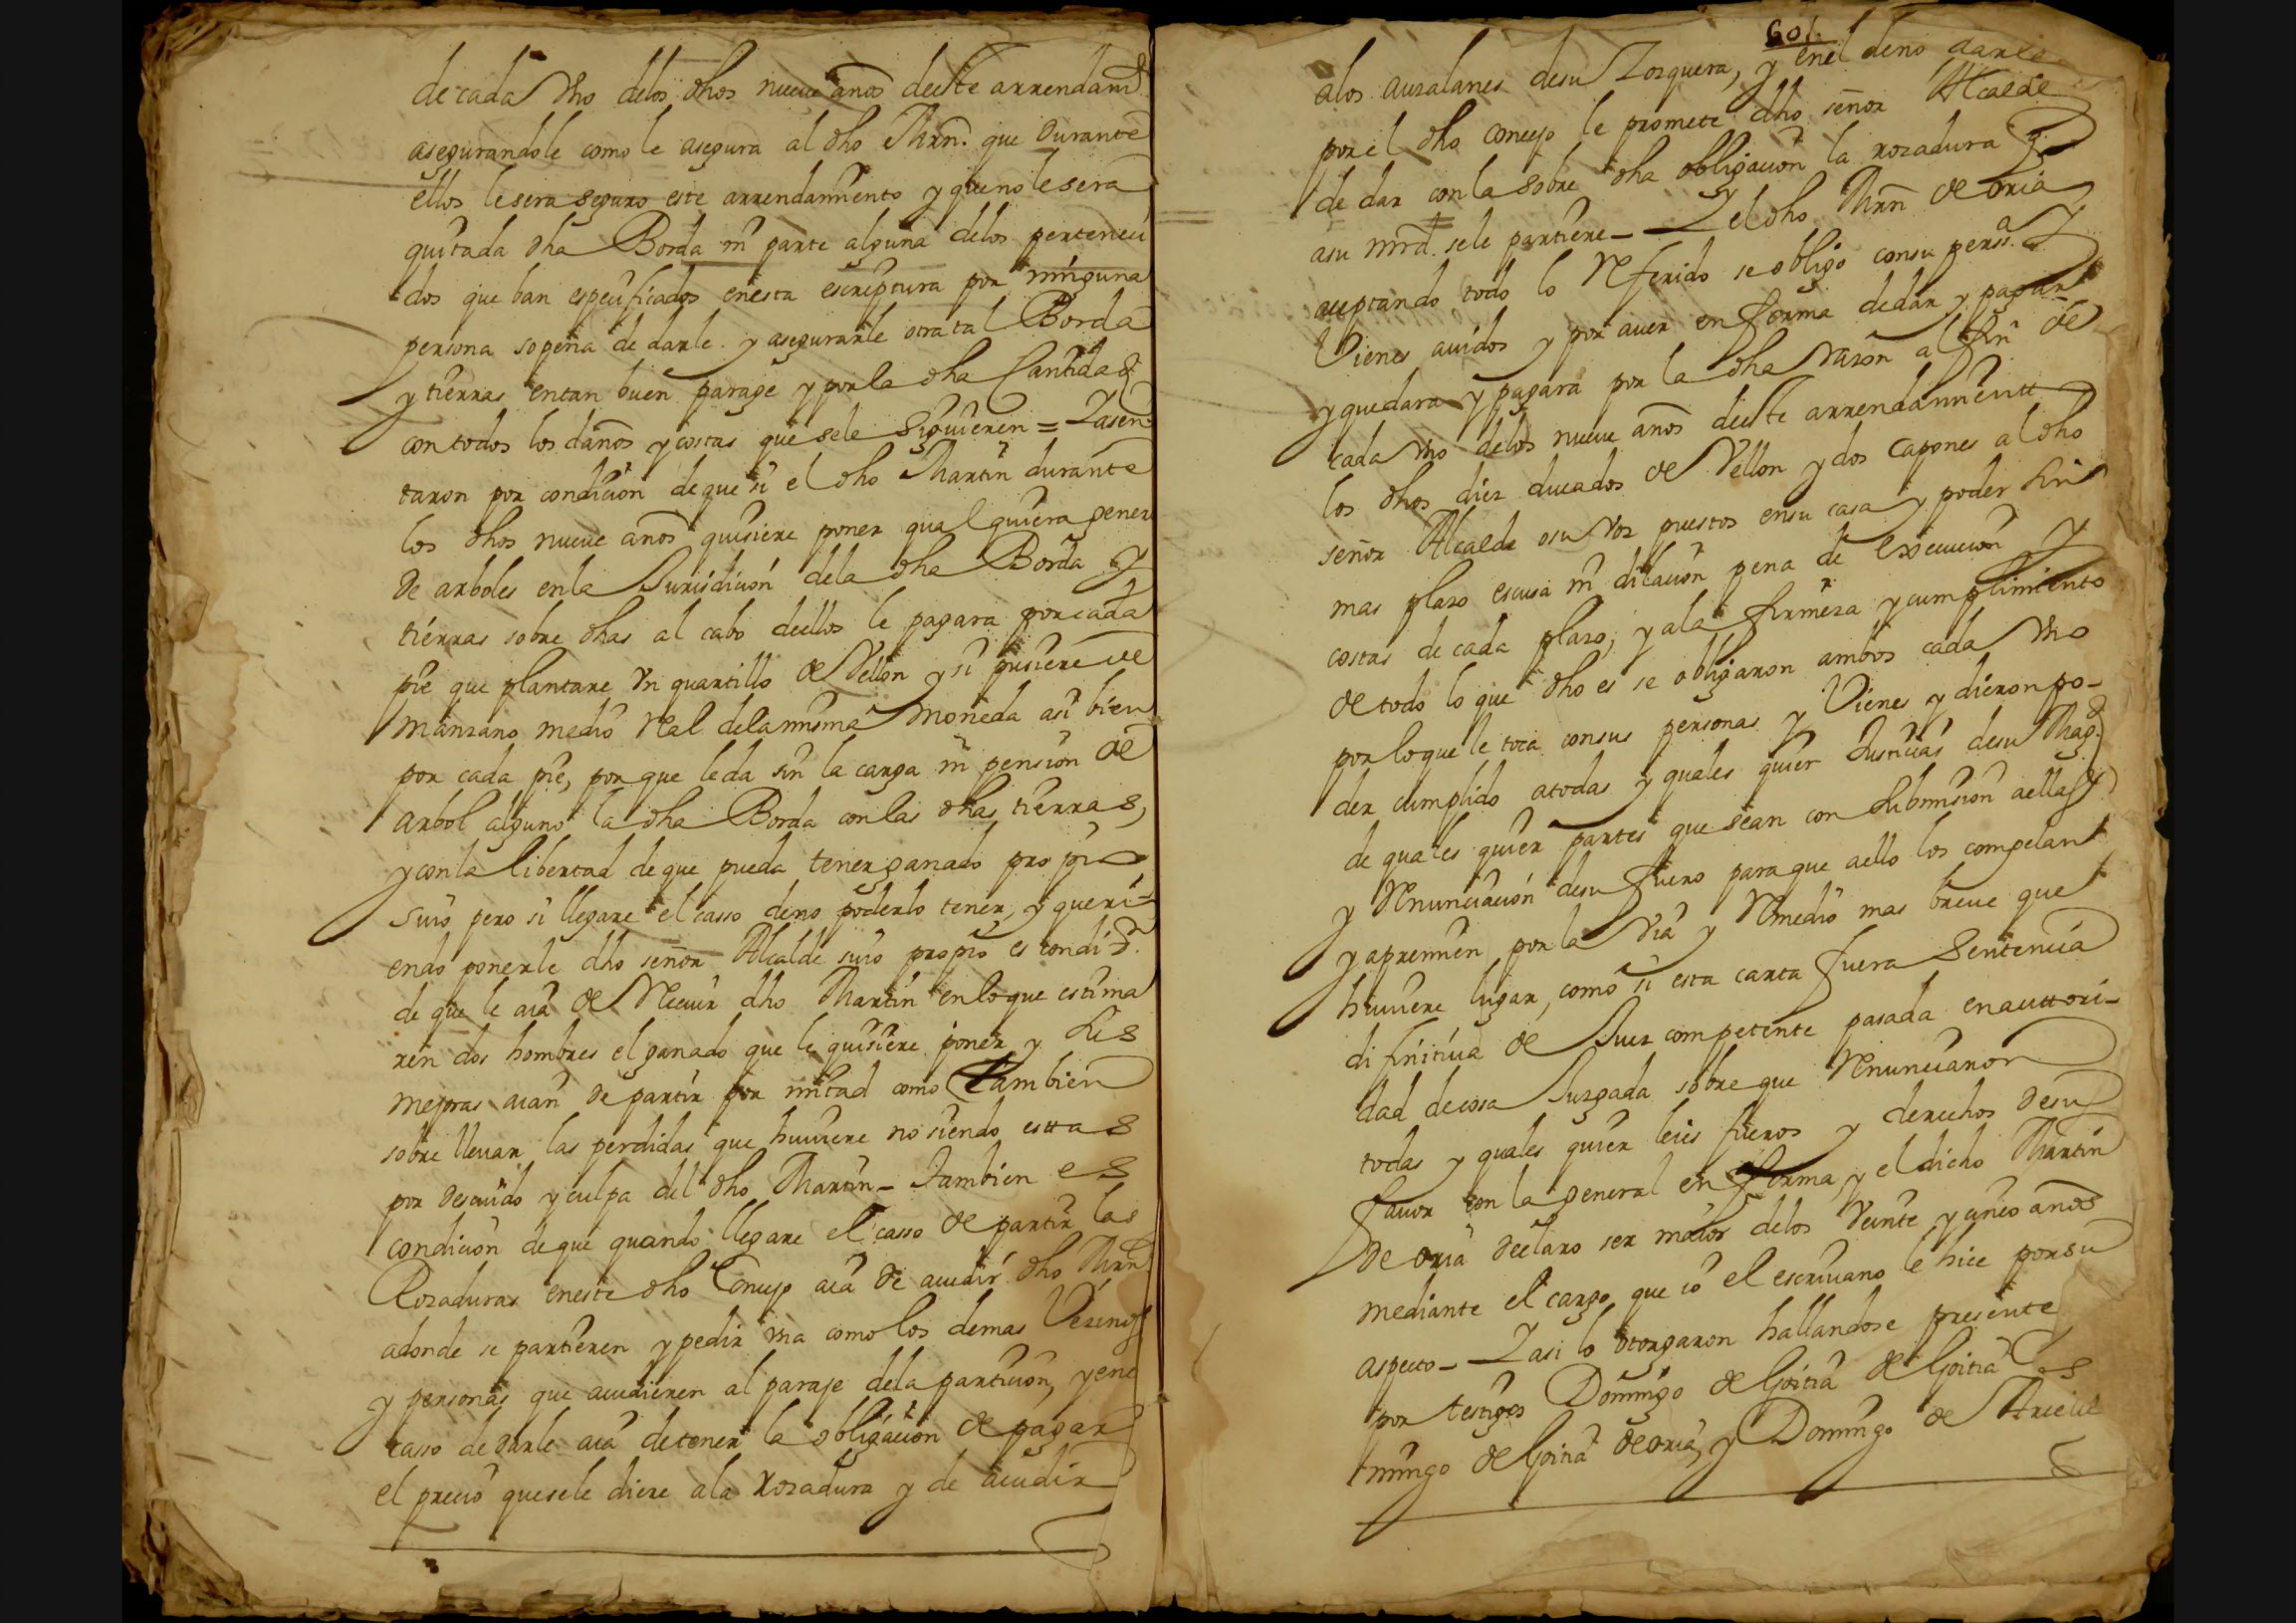 de cada Vno delos dhos nueue años deeste arrendam.to
asegurandole como le asegura al dho Mrn. que Durante
ellos le sera seguro este arrendamiento y que no le sera
quitada dha Borda ni parte alguna delos perteneci
dos que ban especificados enesta escriptura por ninguna
persona sopena de darle y asegurarle otra tal Borda
y tierras entan buen parage y por la dha Cantidad
con todos los daños y costas que sele siguieren = Y asen
taron por condicion de que si el dho Martin durante
los dhos nueue años quisiere poner qual quiera gener
De arboles enla Jurisdicion dela dha Borda y
tierras sobre dhas al cabo deellos le pagara por cada
pie que plantare Vn quartillo de Vellon y si pusiere de
manzano medio Real dela misma moneda asi bien
por cada pie, por que le da sin la carga ni pension de
arbol alguno la dha Borda con las dhas tierras,
y con la libertad de que pueda tener ganado propio
suio pero si llegare el casso deno poderlo tener, y queri-
endo ponerle dho señor Alcalde suio propio es condi.on
de que le aia de Reciuir dho Martin enlo que estima
ren dos hombres el ganado que le quisiere poner y Las
mejoras aian de partir por mitad como tambien
sobre lleuar las perdidas que huuiere no siendo esttas
por descuido y culpa del dho Martin _ Tambien es
condicion de que quando llegare el casso de partir las
Rozaduras eneste dho Concejo aia de acudir dho Mrn
adonde se partieren y pedir vna como los demas Vezinos
y personas que acudieren al paraje dela particion, y ene
casso de darle aia de tener la obligacion de pagar
el precio que sele diere ala Rozadura y de acudir
601.
alos auzalanes desu Zozquera, y enel deno darle
por el dho concejo le promete dho señor Alcalde
de dar con la sobre dha obligacion la rozadura q.e
asu mrd. sele partiere _ Y el dho Mrn de oria
aceptando todo lo Referido se obligo consu perss.a y
Vienes auidos y por auer en forma de dar y pagar
y que dara y pagara por la dha razon al fin de
cada Vno delos nueue años deeste arrendamientto
los dhos diez ducados de Vellon y dos Capones al dho
señor Alcalde osu Voz puestos ensu casa y poder sin
mas plazo escusa ni dilacion pena de execucion y
costas de cada plazo, y ala firmeza y cumplimiento
de todo lo que dho es se obligaron ambos cada Vno
por lo que le toca consus personas y Vienes y dieron po-
der cumplido atodas y quales quier Justicias desu Mag.d
de quales quier partes que sean con submision aellas
y Renunciacion desu fuero para que aello los compelan
y apremien por la Via y Remedio mas breue que
huuiere lugar, como si esta carta fuera Sentencia
difinitiua de Juez competente pasada enauttori-
dad decosa Juzgada sobre que Renunciaron
todas y quales quier leies fueros y derechos desu
fauor con la general en forma, y el dicho Martin
de oria declaro ser maior delos Veinte y cinco años
mediante el cargo que io el escriuano le hice por su
aspecto _ Y asi lo otorgaron hallandose presente
por testigos Domingo de Goitia de Goitia
mingo de Goitia de oria, y Domingo de